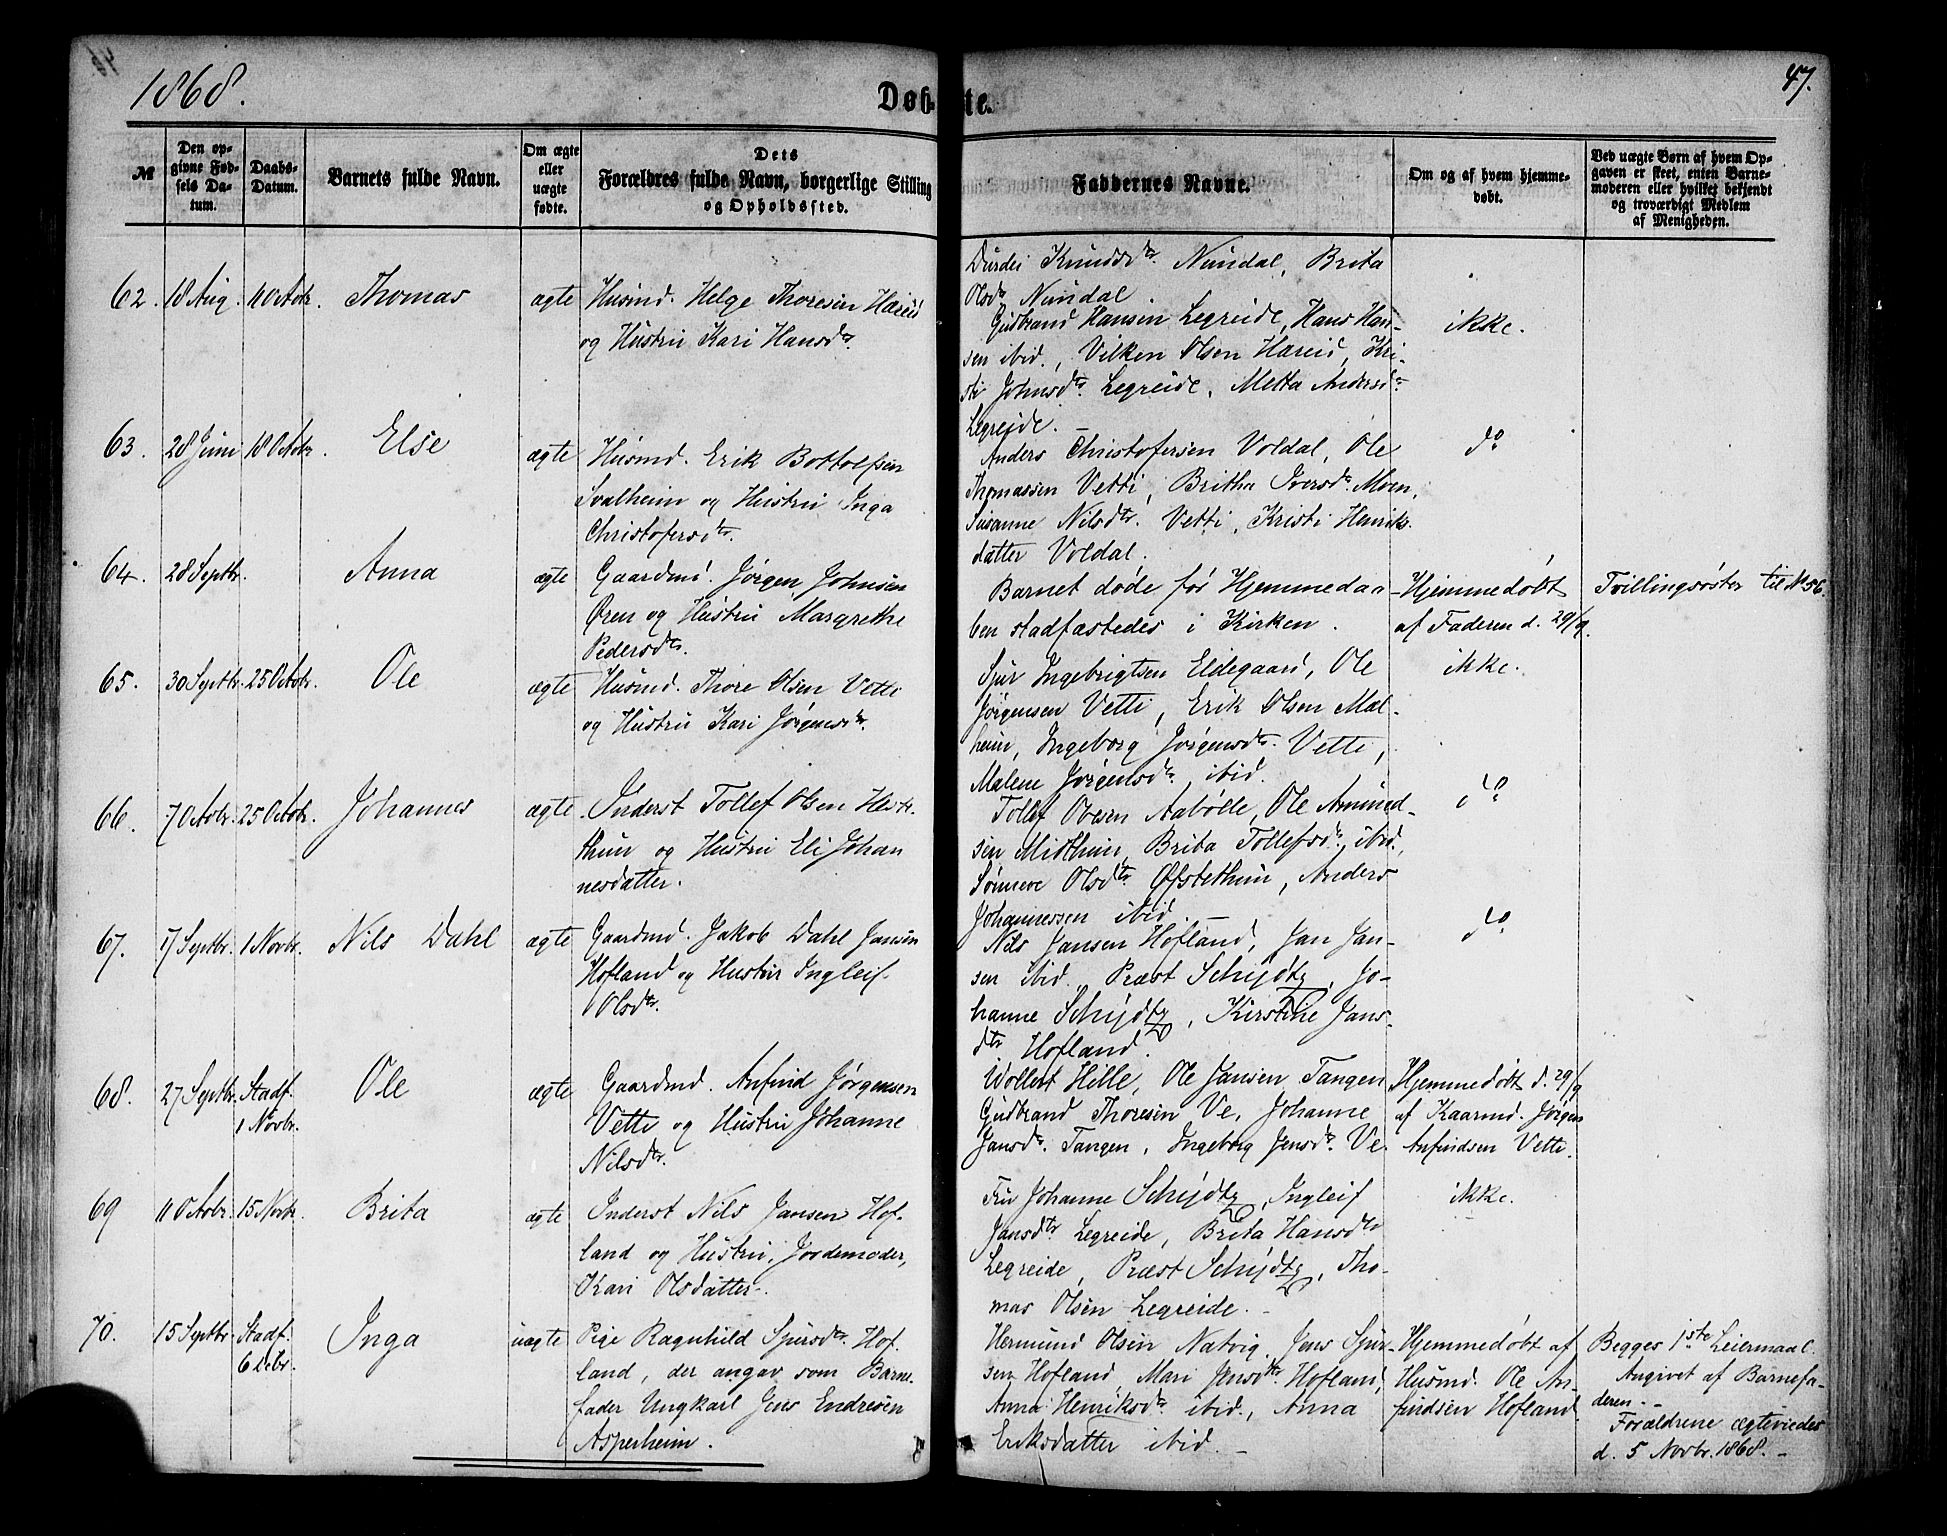 1868.
Døbte.
47.
№
Den opgivne Fødsels Datum.
Daabs-Datum.
Barnets fulde Navn.
Om ægte eller uægte fødte.
Dets Forældres fulde Navn, borgerlige Stilling og Opholdssted.
Faddernes Navne.
Om og af hvem hjemmedøbt.
Ved uægte Børn af hvem Opgaven er skeet, enten Barnemoderen eller hvilket bekjendt og troværdigt Medlem af Menigheden.
Durdei Knudsdtr. Nundal, Brita
Olsdtr Nundal.
62. 18 Aug. 11 Octobr. Thomas ægte Husmd. Helge Thoresen Hæreid
og Hustru Kari Hansdtr.
Gudbrand Hansen Legreide, Hans Han-
sen ibid., Vilken Olsen Hæreid, Kri-
sti Johnsdtr. Legreide, Metta Andersdtr.
Legreide.
ikke.
63. 28 Juni 18 Octobr. Else ægte Husmd. Erik Bottolfsen
Svalheim og Hustru Inga
Christofersdtr.
Anders Christofersen Voldal, Ole
Thomassen Vetti, Britha Iversdtr. Moen,
Susanne Nilsdtr. Vetti, Kristi Henriks
datter Voldal.
do
64. 28 Septbr. Anna ægte Gaardmd. Jørgen Johnsen
Øren og Hustru Margrethe
Pedersdtr.
Barnet døde før Hjemmedaa-
ben stadfæstedes i Kirken.
Hjemmedøbt
af Faderen d. 29/9.
Tvillingsøster til № 56.
65. 30 Septbr. 25 Octobr. Ole ægte Husmd. Thore Olsen Vetti
og Hustru Kari Jørgensdtr.
Sjur Ingebrigtsen Eldegaard, Ole
Jørgensen Vetti, Erik Olsen Mæl-
heim, Ingeborg Jørgensdtr. Vetti,
Malene Jørgensdtr. ibid.
ikke.
66. 7 Octobr. 25 Octobr. Johannes ægte Inderst Tollef Olsen Hest-
thun og Hustru Eli Johan
nesdatter.
Tollef Olsen Aabølle, Ole Amund-
sen Midthun, Brita Tollefsdtr. ibid.,
Sønneve Olsdtr. Øfstethun, Anders
Johannessen ibid. —
do
67. 17 Septbr. 1 Novbr. Nils Dahl ægte Gaardmd. Jakob Dahl Jansen
Hofland og Hustru Ingleif
Olsdtr.
Nils Jansen Hofland, Jan Jan-
sen ibid. Præst Schjødtz, Jo-
hanne Schjødtz, Kirstine Jans-
dtr Hofland.
do
68. 27 Septbr. Stadf.
1 Novbr. Ole ægte Gaardmd. Anfind Jørgensen
Vetti og Hustru Johanne
Nilsdtr.
Wollert Hille, Ole Jansen Tangen
Gudbrand Thoresen Ve, Johanne
Jansdtr. Tangen, Ingeborg Jensdtr. Ve
Hjemmedøbt d. 29/9
af Kaarmd. Jørgen
Anfindsen Vetti.
69 11 Octobr. 15 Novbr. Brita ægte Inderst Nils Jansen Hof-
land og Hustru, Jordemoder,
Kari Olsdatter.
Fru Johanne Schjødtz, Ingleif
Jansdtr Legreide, Brita Hansdtr
Legreide, Præst Schjødtz, Tho-
mas Olsen Legreide. —
ikke.
70. 15 Septbr. Stadf.
6 Decbr. Inga uægte Pige Ragnhild Sjursdtr. Hof-
land, der angav som Barne-
fader Ungkarl Jens Endresen
Asperheim.
Hermund Olsen Natvig, Jens Sjur-
sen Hofland, Mari Jensdtr. Hofland,
Anna Henriksdtr. ibid., Anna
Eriksdatter ibid. —
Hjemmedøbt af
Husmd. Ole An-
findsen Hofland.
Begges 1ste Leiermaal.
Angivet af Barnefa-
deren. —
Forældrene ægteviedes
d. 5 Novbr. 1868. —